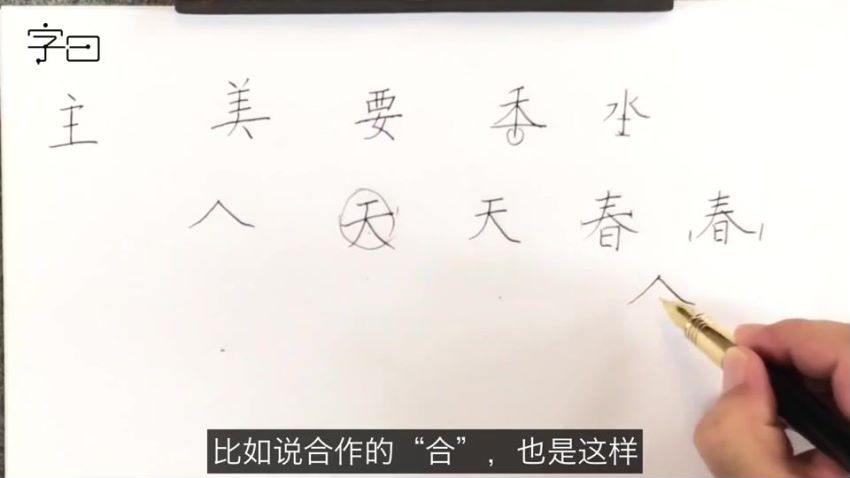 字曰
主 美 要 香 坐
人 天 天 春 春
人
比如说合作的“合”，也是这样